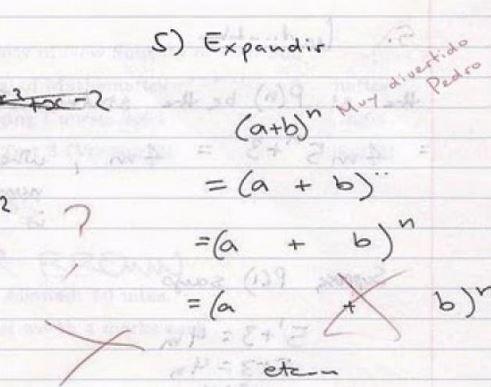 5) Expandir
Muy divertido
Pedro
+x-2
(a+b)ⁿ
= (a + b)ⁿ
2
?
=(a + b)ⁿ
=(a + b)ⁿ
etc...